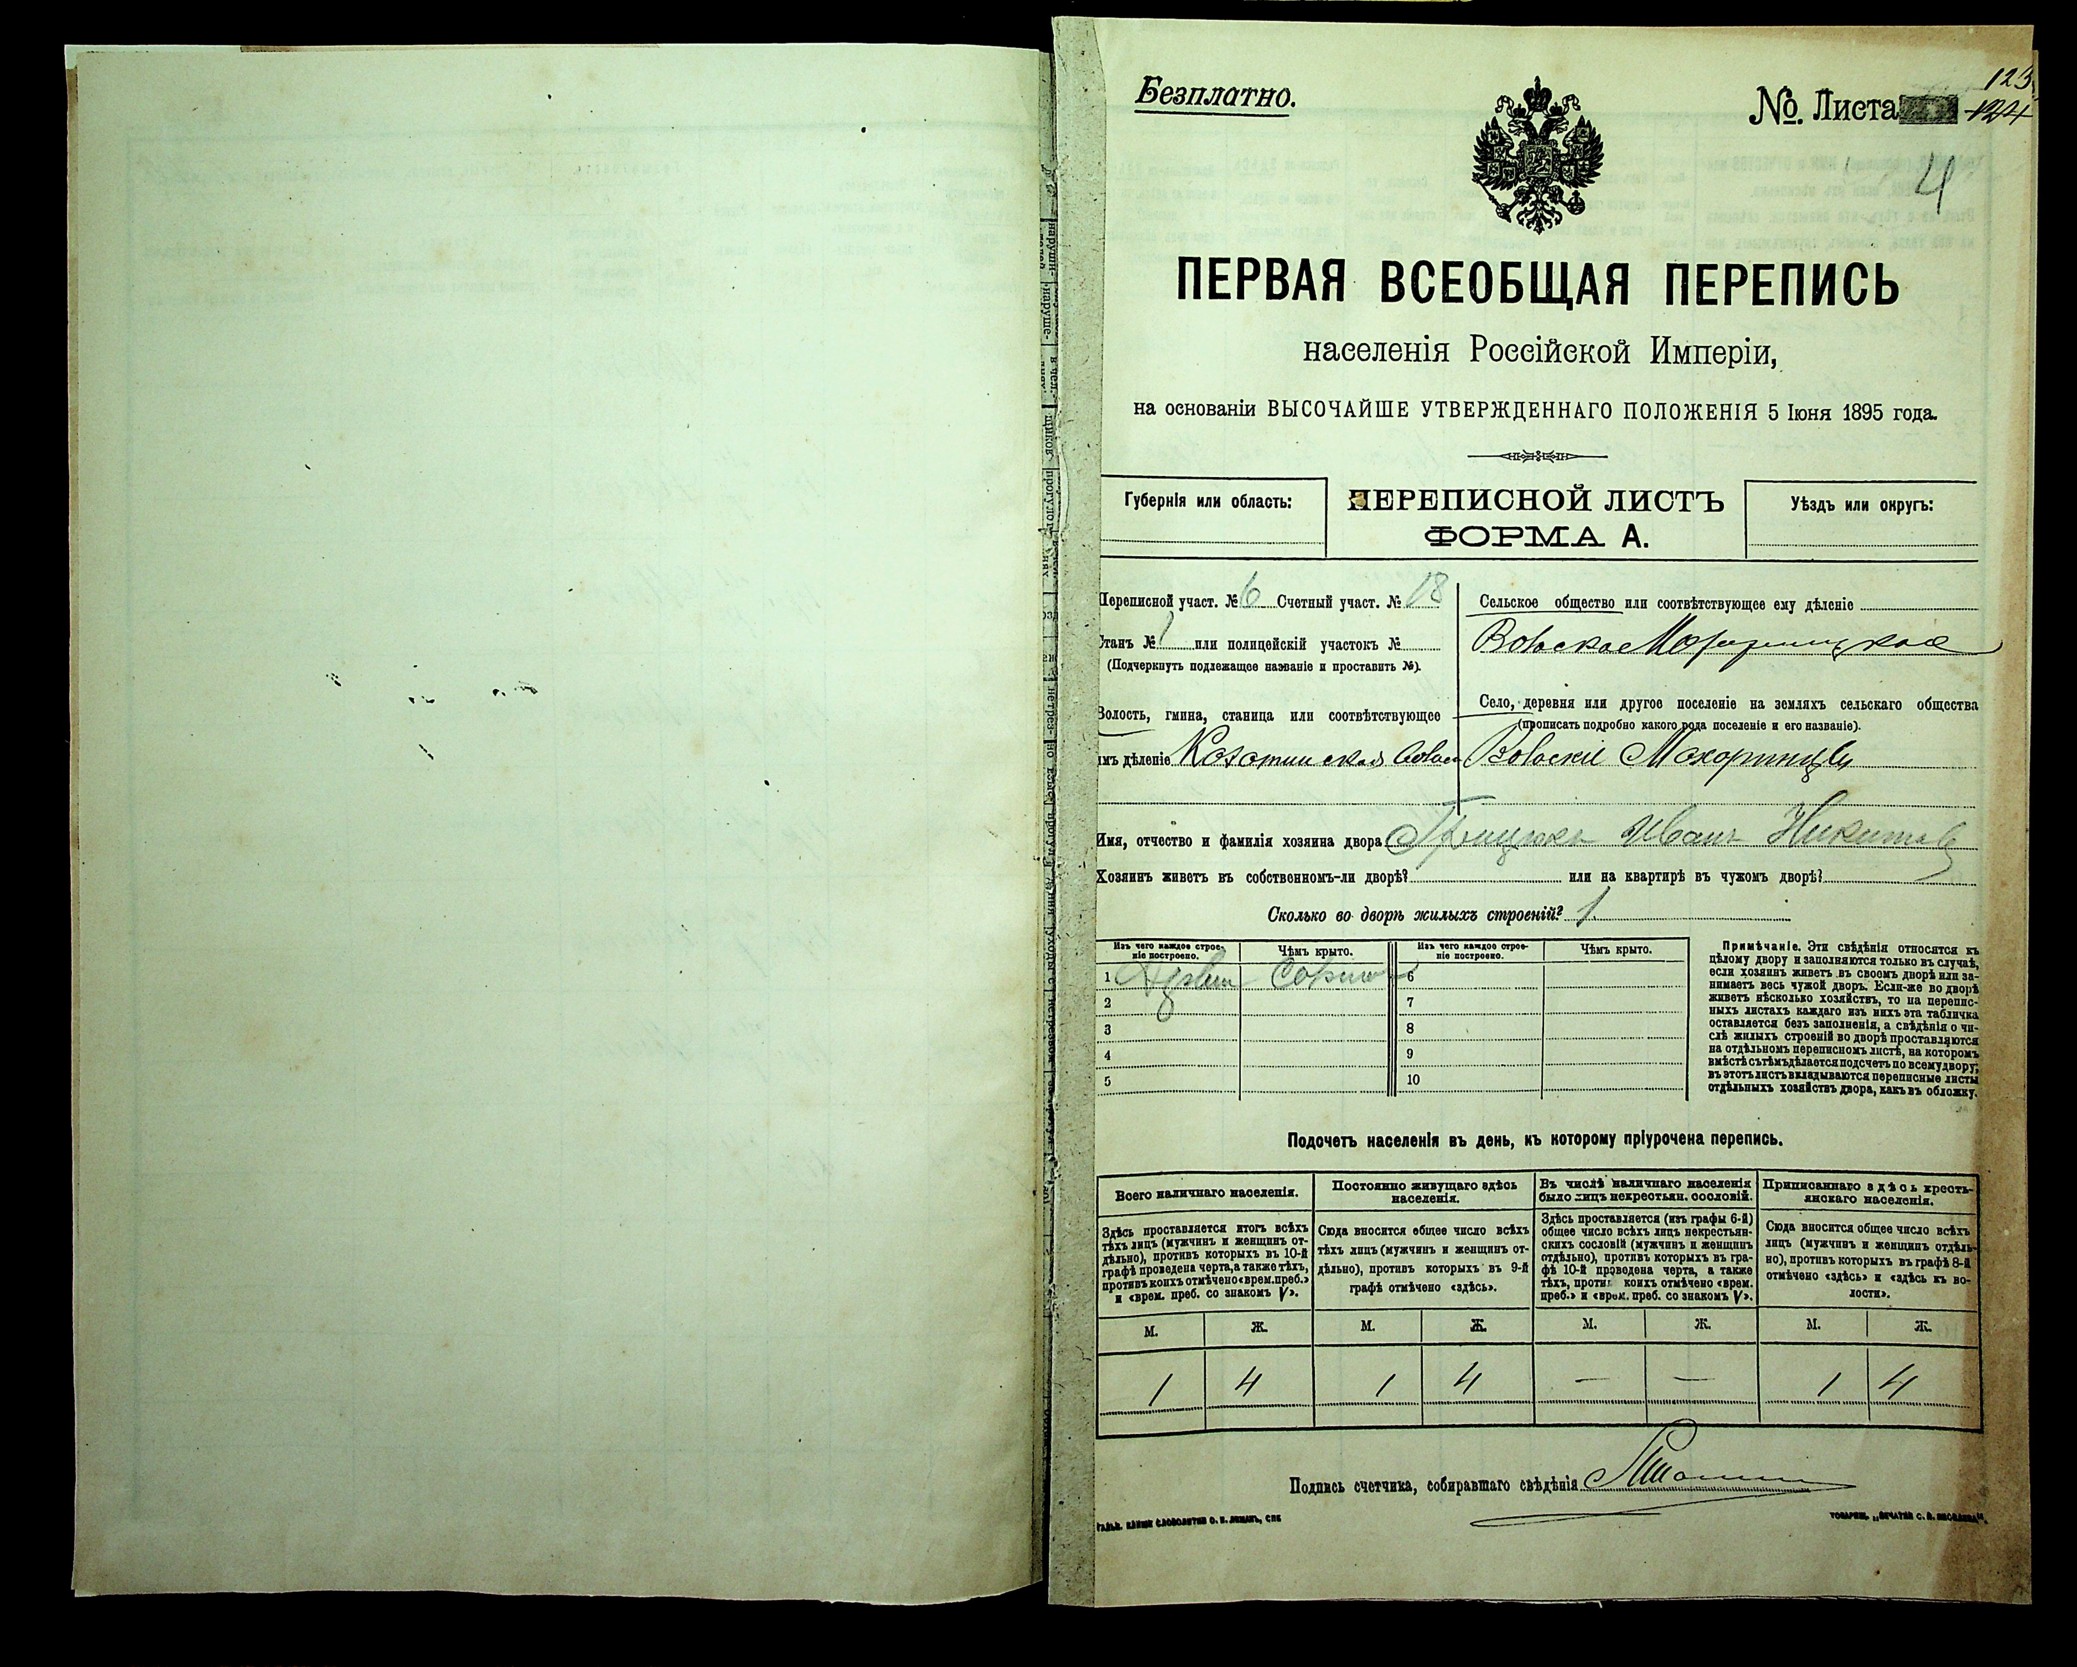 Безплатно.
№ Листа 123
124
4
ПЕРВАЯ ВСЕОБЩАЯ ПЕРЕПИСЬ
населенія Россійской Имперіи,
на основаніи ВЫСОЧАЙШЕ УТВЕРЖДЕННАГО ПОЛОЖЕНІЯ 5 Іюня 1895 года.
Губернія или область:
ПЕРЕПИСНОЙ ЛИСТЪ
ФОРМА А.
Уѣздъ или округъ:
Переписной участ. № 6 Счетный участ. № 18
Станъ № 1 или полицейскій участокъ №
(Подчеркнуть подлежащее названіе и проставить №).
Волость, гмина, станица или соотвѣтствующее
имъ дѣленіе
Сельское общество или соотвѣтствующее ему дѣленіе
Село, деревня или другое поселеніе на земляхъ сельскаго общества
(прописать подробно какого рода поселеніе и его названіе).
Махаринцы
Имя, отчество и фамилія хозяина двора Грицюкъ Иванъ Никитовъ
Хозяинъ живетъ въ собственномъ-ли дворѣ? или на квартирѣ въ чужомъ дворѣ?
Сколько во дворѣ жилыхъ строеній? 1.
Изъ чего каждое строе-
ніе построено.
Чѣмъ крыто.
Изъ чего каждое строе-
ніе построено.
Чѣмъ крыто.
1
6
2
7
3
8
4
9
5
10
Примѣчаніе. Эти свѣдѣнія относятся къ
цѣлому двору и заполняются только въ случаѣ,
если хозяинъ живетъ въ своемъ дворѣ или за-
нимаетъ весь чужой дворъ. Если-же во дворѣ
живетъ нѣсколько хозяйствъ, то на перепис-
ныхъ листахъ каждаго изъ нихъ эта табличка
оставляется безъ заполненія, а свѣдѣнія о чи-
слѣ жилыхъ строеній во дворѣ проставляются
на отдѣльномъ переписномъ листѣ, на которомъ
вмѣстѣ съ тѣмъ дѣлается подсчетъ по всему двору;
въ этотъ листъ вкладываются переписные листы
отдѣльныхъ хозяйствъ двора, какъ въ обложку.
Подочетъ населенія въ день, къ которому пріурочена перепись.
Всего наличнаго населенія.
Здѣсь проставляется итогъ всѣхъ
тѣхъ лицъ (мужчинъ и женщинъ от-
дѣльно), противъ которыхъ въ 10-й
графѣ проведена черта, а также тѣхъ,
противъ коихъ отмѣчено «врем. преб.»
и «врем. преб. со знакомъ V».
Постоянно живущаго здѣсь
населенія.
Сюда вносится общее число всѣхъ
тѣхъ лицъ (мужчинъ и женщинъ от-
дѣльно), противъ которыхъ въ 9-й
графѣ отмѣчено «здѣсь».
Въ числѣ наличнаго населенія
было лицъ некрестьян. сословій.
Здѣсь проставляется (изъ графы 6-й)
общее число всѣхъ лицъ некрестьян-
скихъ сословій (мужчинъ и женщинъ
отдѣльно), противъ которыхъ въ гра-
фѣ 10-й проведена черта, а также
тѣхъ, противъ коихъ отмѣчено «врем.
преб.» и «врем. преб. со знакомъ V».
Приписаннаго здѣсь кресть-
янскаго населенія.
Сюда вносится общее число всѣхъ
лицъ (мужчинъ и женщинъ отдѣль-
но), противъ которыхъ въ графѣ 8-й
отмѣчено «здѣсь» и «здѣсь въ во-
лости».
М. Ж. М. Ж. М. Ж. М. Ж.
1 4 1 4 — — 1 4
Подпись счетчика, собиравшаго свѣдѣнія